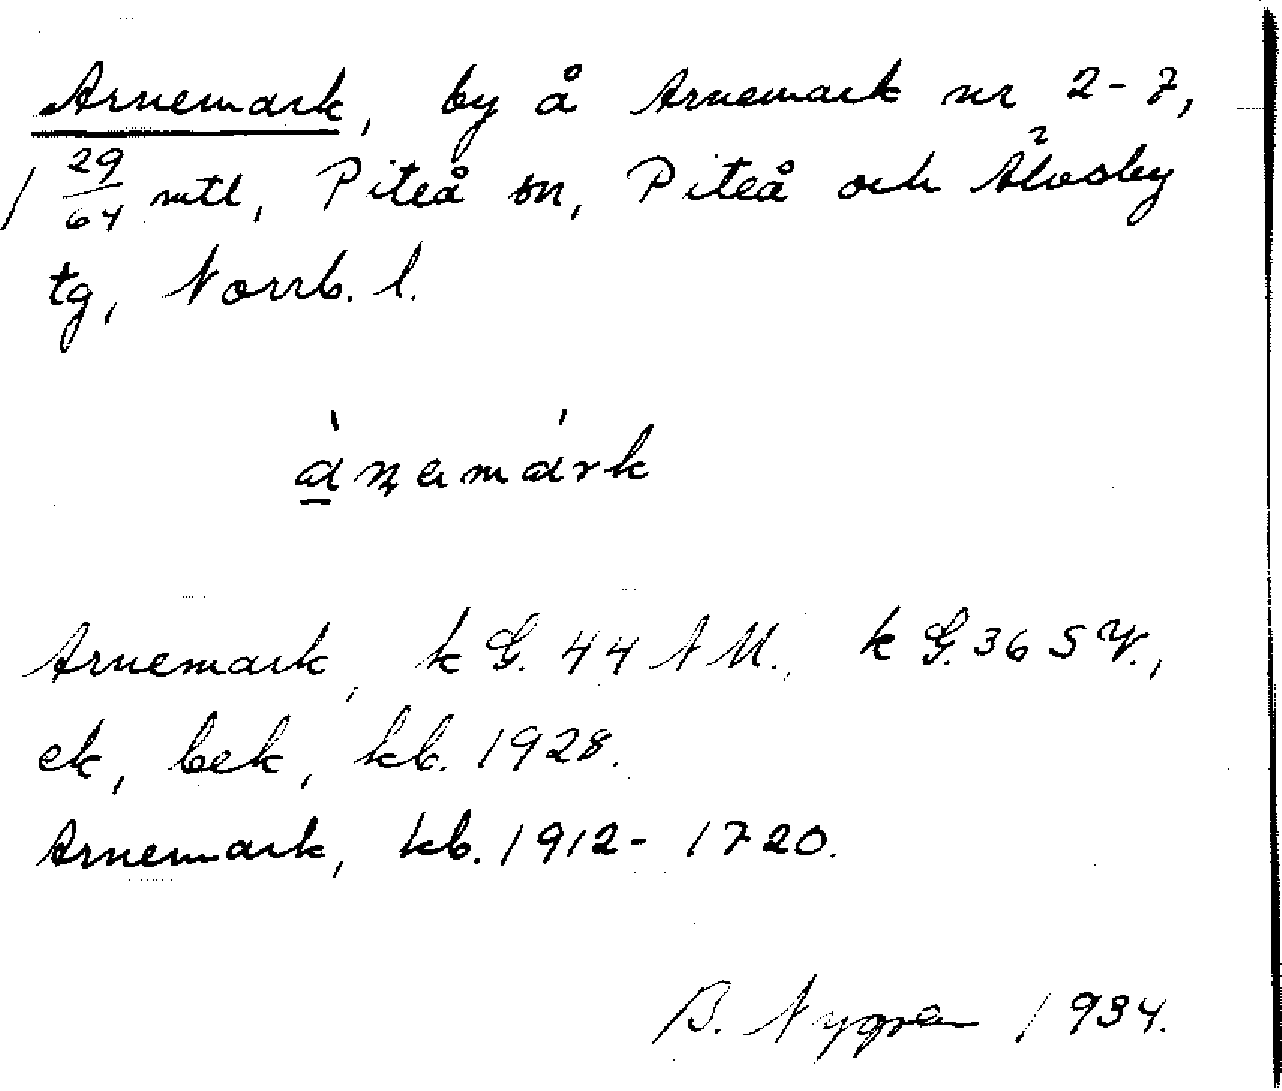 Arnemark, by å Arnemark nr 2-7,
1 29/64 mtl, Piteå sn, Piteå och Älvsby
tg, Norrb. l.
ànamárk
Arnemark, k G. 44 NM., k G. 36 SV.,
ek, bek, kb. 1928.
Arnemark, kb. 1912- 1720.
B. Nygren 1934.